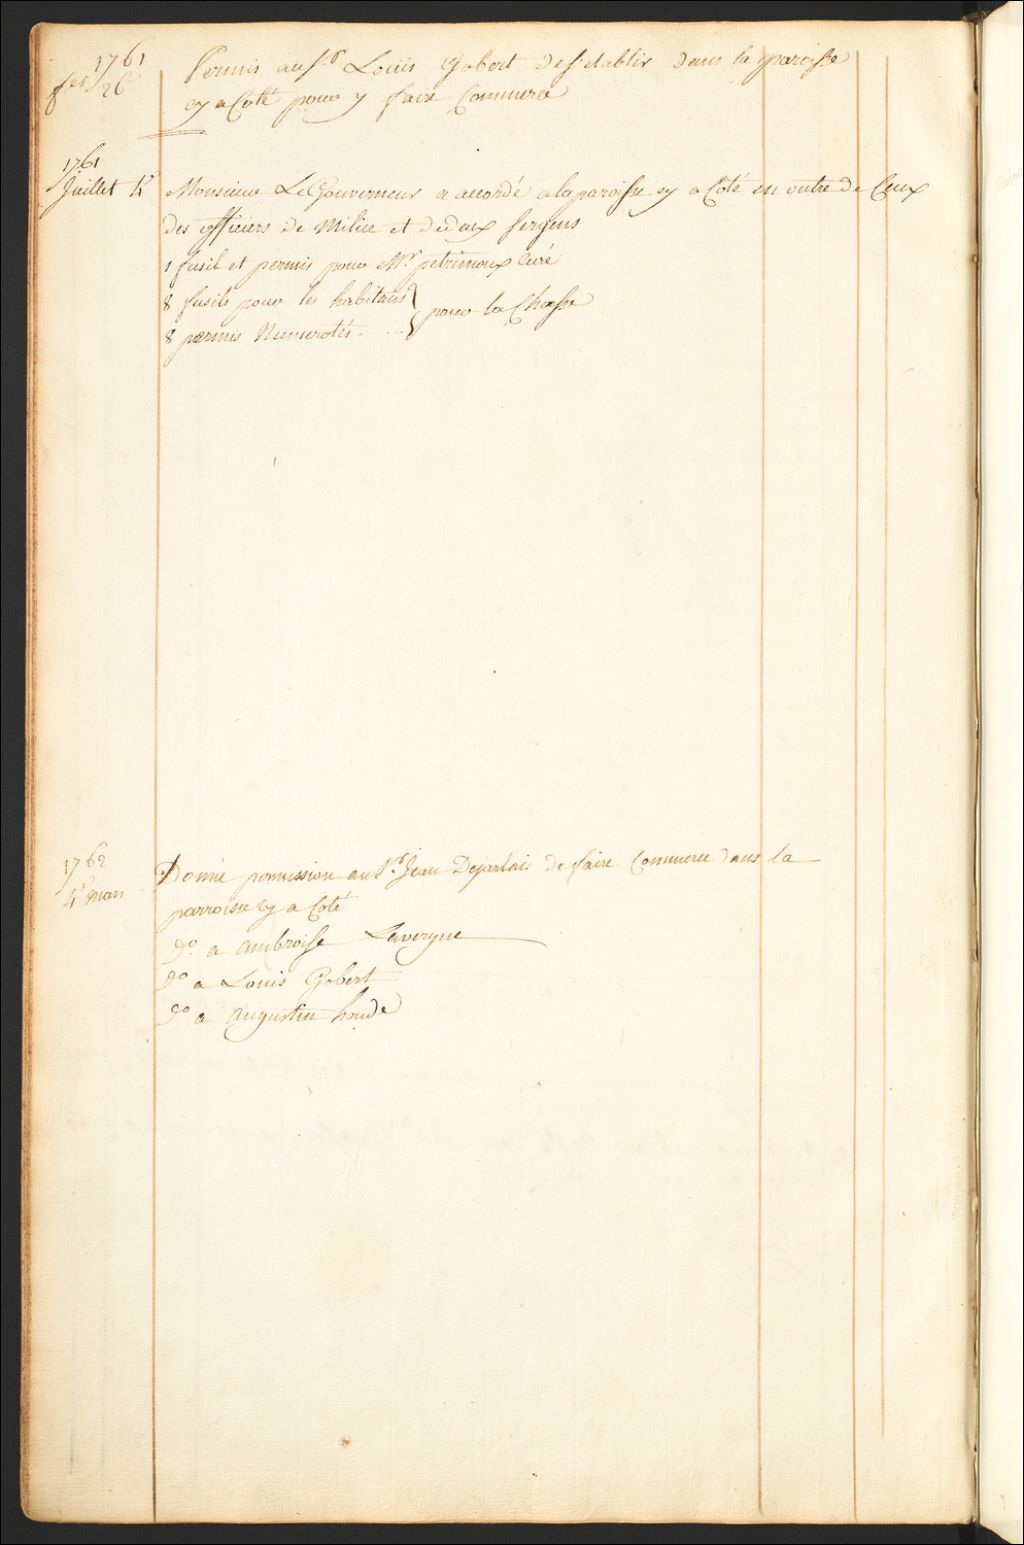 1761
fer 26
Permis au Sr Louis Gobert de s'etablir dans la paroisse
cy a Coté pour y faire Commerce
1761
Juillet 4e
Monsieur Le Gouverneur a accordé a la paroisse cy a Coté en outre de Ceux
des officiers de Milice et de deux sergens
1 fusil et permis pour Mr. petrimoux Curé
8 fusils pour les habitans } pour la Chasse
8 permis Numerotés
1762
4e Mars
Donné permission au Sr. Jean Dejarlais de faire Commerce dans la
parroisse Cy a Coté
do. a ambroise Lavergne
do a Louis Gobert
do a Augustin houde